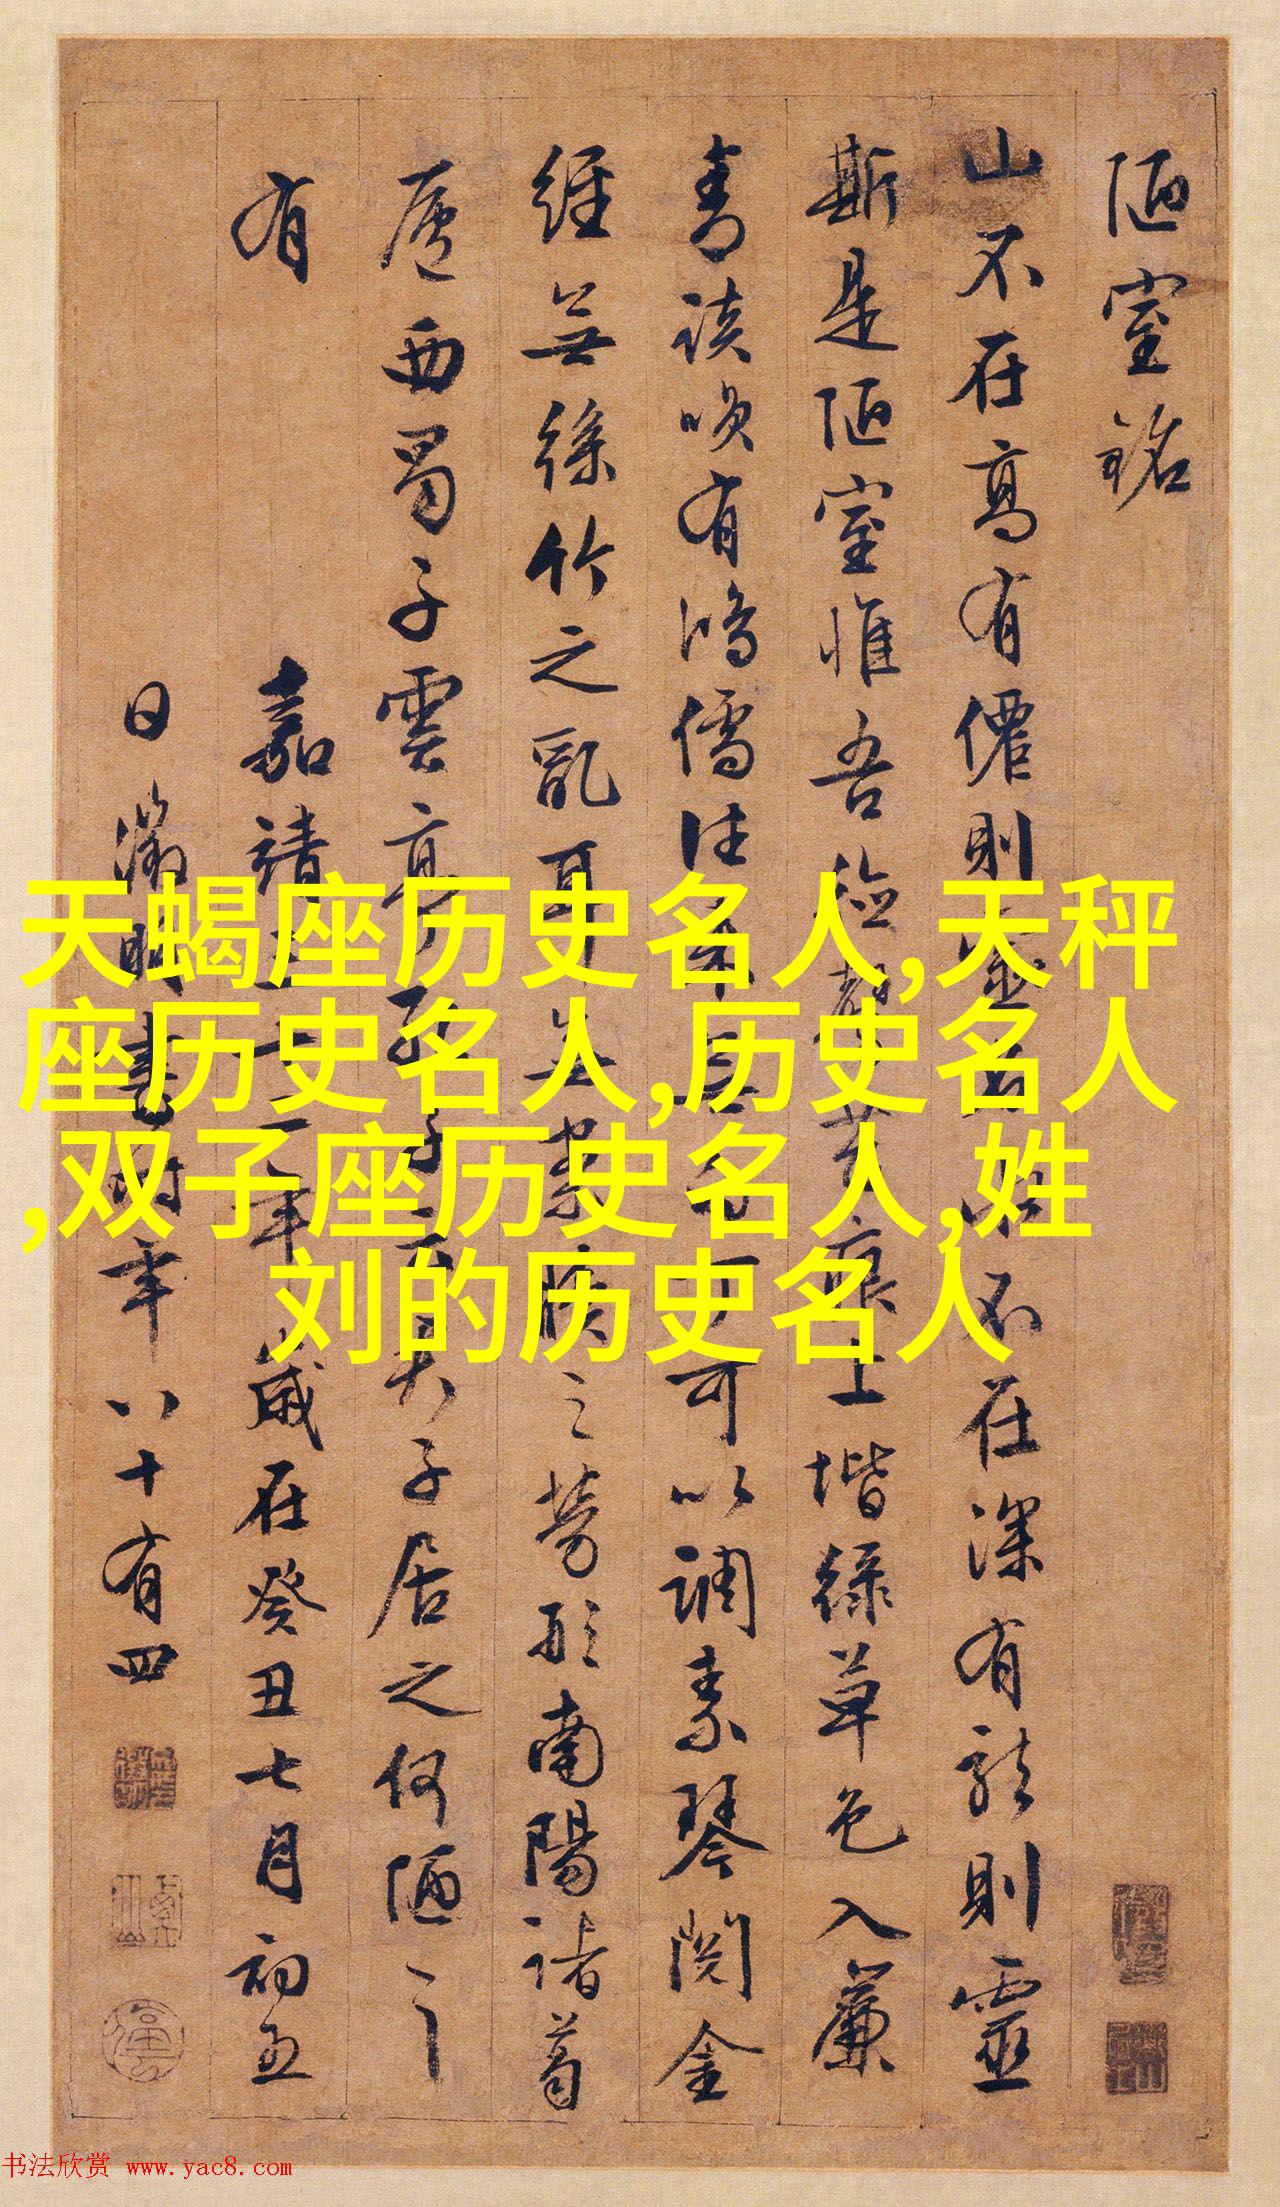 陋室銘
山不在高有僊則不在深有龍則靈
斯是陋室惟吾德馨苔痕上堦緑草色入簾
青談咲有鴻儒往来無白丁可以調素琴閱金
經無絲竹之亂耳無案牘之勞形南陽諸葛
廬西蜀子雲亭孔子云君子居之何陋之
有 嘉靖三十二年歲在癸丑七月初五
日徵明書時年八十有四
天蝎座历史名人,天秤
座历史名人,历史名人
,双子座历史名人,姓
刘的历史名人
书法欣赏 www.yac8.com